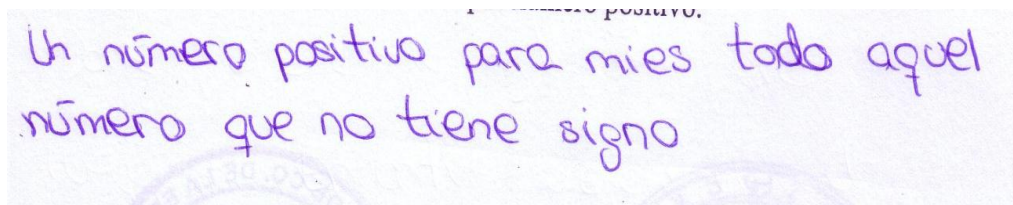 positivo.
Un número positivo para mies todo aquel
número que no tiene signo